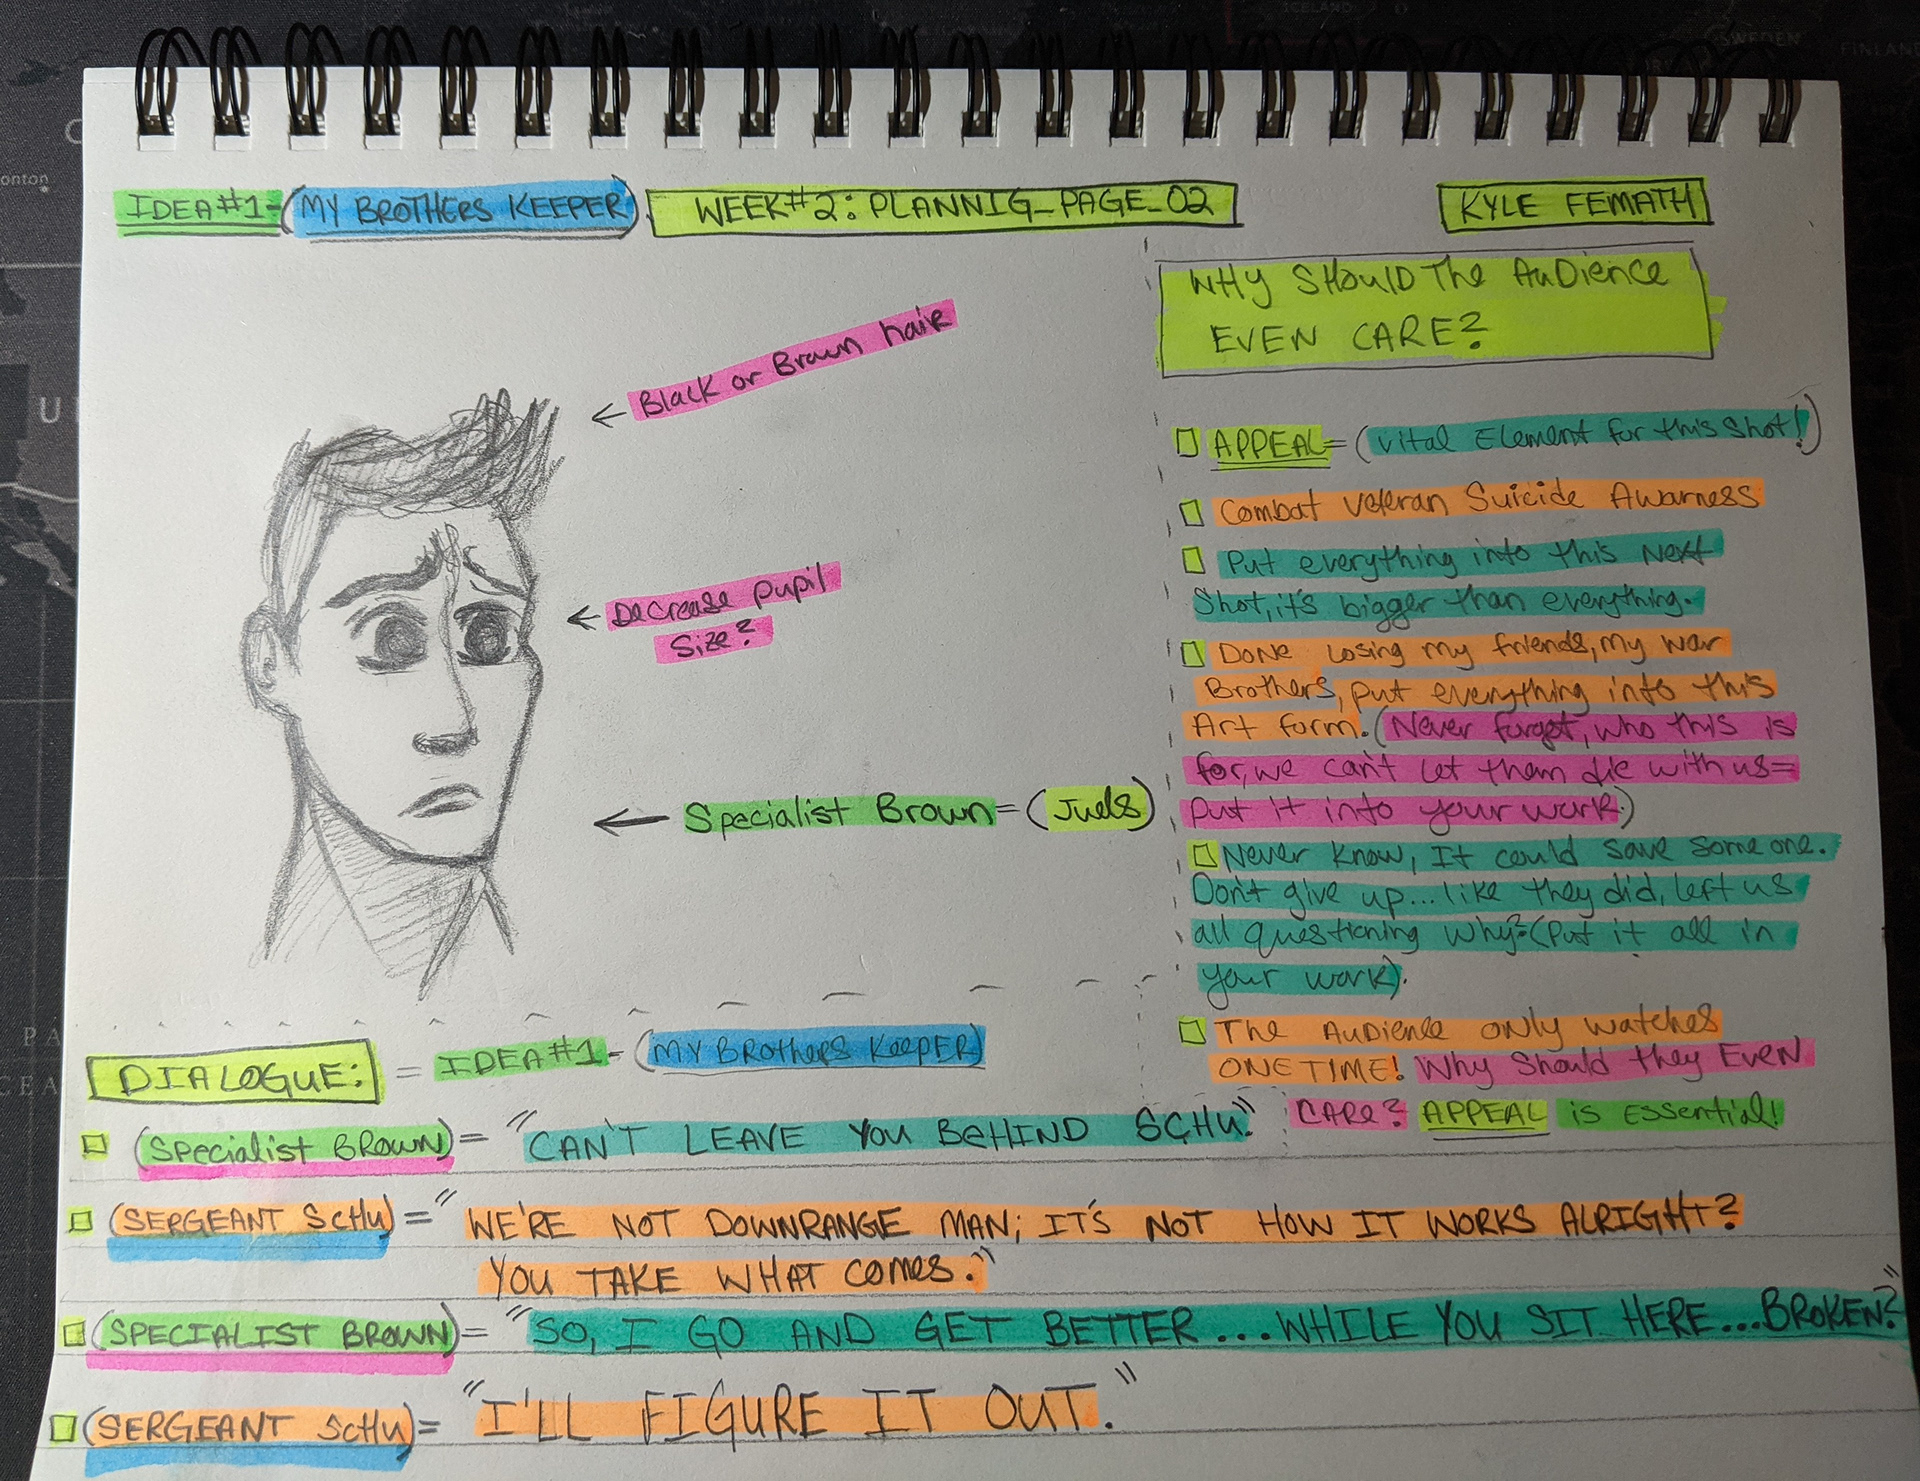 IDEA#1-(MY BROTHERS KEEPER). WEEK#2: PLANNIG_PAGE_02 KYLE FEMATH
WHY SHOULD THE AUDIENCE
EVEN CARE?
← Black or Brown hair
← Decrease pupil
size?
← Specialist Brown=(Juels)
APPEAL=(Vital Element for this shot!)
Combat veteran Suicide Awarness
Put everything into this Next
Shot, it's bigger than everything.
Done losing my friends, my war
Brothers, put everything into this
Art form. (Never forget, who this is
for, we can't let them die with us=
put it into your work.)
Never know, It could save someone.
Don't give up... like they did, left us
all questioning why? (Put it all in
your work).
The Audience only watches
ONE TIME! Why Should they Even
CARE? APPEAL is Essential!
DIALOGUE: = IDEA#1-(MY BROTHERS KEEPER)
(Specialist Brown)= "CAN'T LEAVE YOU BEHIND SCHU."
(SERGEANT SCHU)= "WE'RE NOT DOWNRANGE MAN; IT'S NOT HOW IT WORKS ALRIGHT?
YOU TAKE WHAT COMES."
(SPECIALIST BROWN)= "SO, I GO AND GET BETTER...WHILE YOU SIT HERE...BROKEN?"
(SERGEANT SCHU)= "I'LL FIGURE IT OUT."
ICELAND
SWEDEN
FINLAN
onton
U
PA
CEA